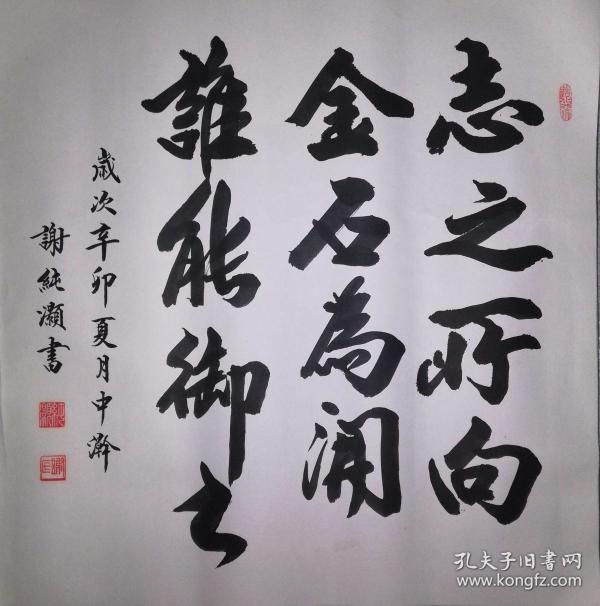 志之所向
金石為開
誰能御之
歲次辛卯夏月中澣
謝純灝書
孔夫子旧书网
www.kongfz.com